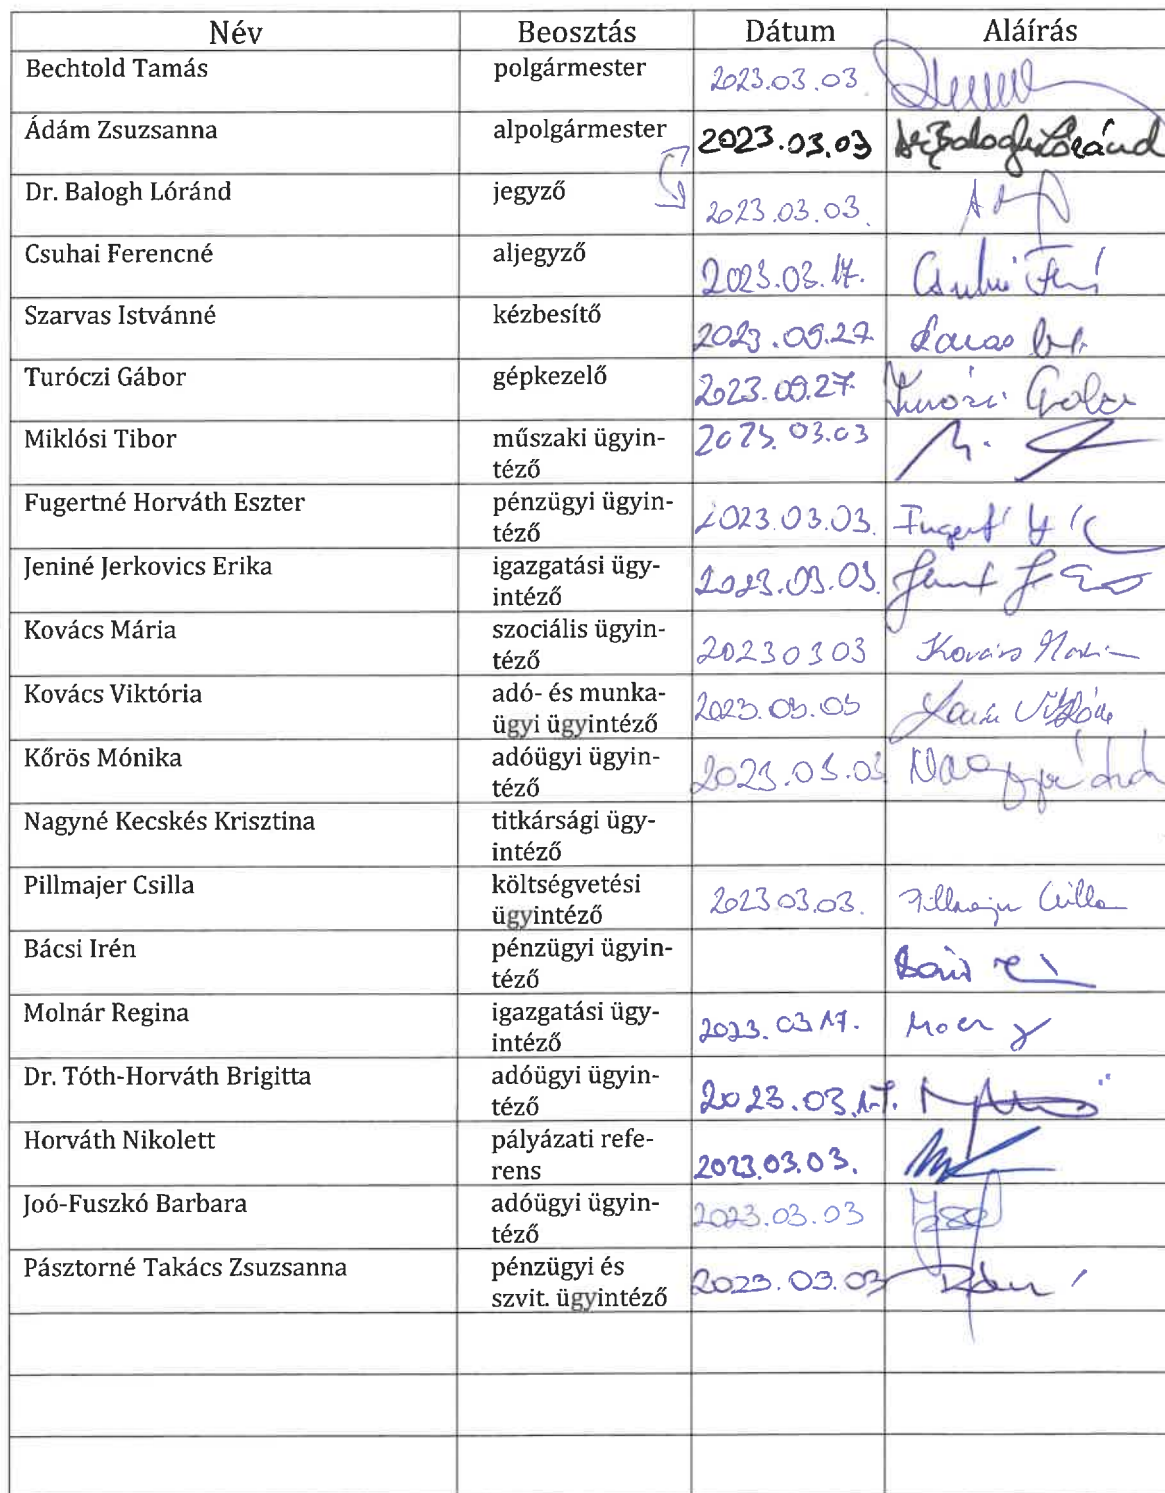 Név Beosztás Dátum Aláírás
Bechtold Tamás polgármester 2023.03.03
Ádám Zsuzsanna alpolgármester 2023.03.03 Dr. Balogh Lóránd
Dr. Balogh Lóránd jegyző 2023.03.03.
Csuhai Ferencné aljegyző 2023.03.17.
Szarvas Istvánné kézbesítő
Turóczi Gábor gépkezelő Turóczi Gábor
Miklósi Tibor műszaki ügyin-
téző
Fugertné Horváth Eszter pénzügyi ügyin-
téző 2023.03.03.
Jeniné Jerkovics Erika igazgatási ügy-
intéző 2023.03.03.
Kovács Mária szociális ügyin-
téző 20230303 Kovács Mária
Kovács Viktória adó- és munka-
ügyi ügyintéző 2023.03.03
Kőrös Mónika adóügyi ügyin-
téző 2023.03.03
Nagyné Kecskés Krisztina titkársági ügy-
intéző
Pillmajer Csilla költségvetési
ügyintéző 2023 03.03. Pillmajer Csilla
Bácsi Irén pénzügyi ügyin-
téző
Molnár Regina igazgatási ügy-
intéző 2023.03.17.
Dr. Tóth-Horváth Brigitta adóügyi ügyin-
téző 2023.03.17.
Horváth Nikolett pályázati refe-
rens 2023.03.03.
Joó-Fuszkó Barbara adóügyi ügyin-
téző 2023.03.03
Pásztorné Takács Zsuzsanna pénzügyi és
szvit. ügyintéző 2023.03.03